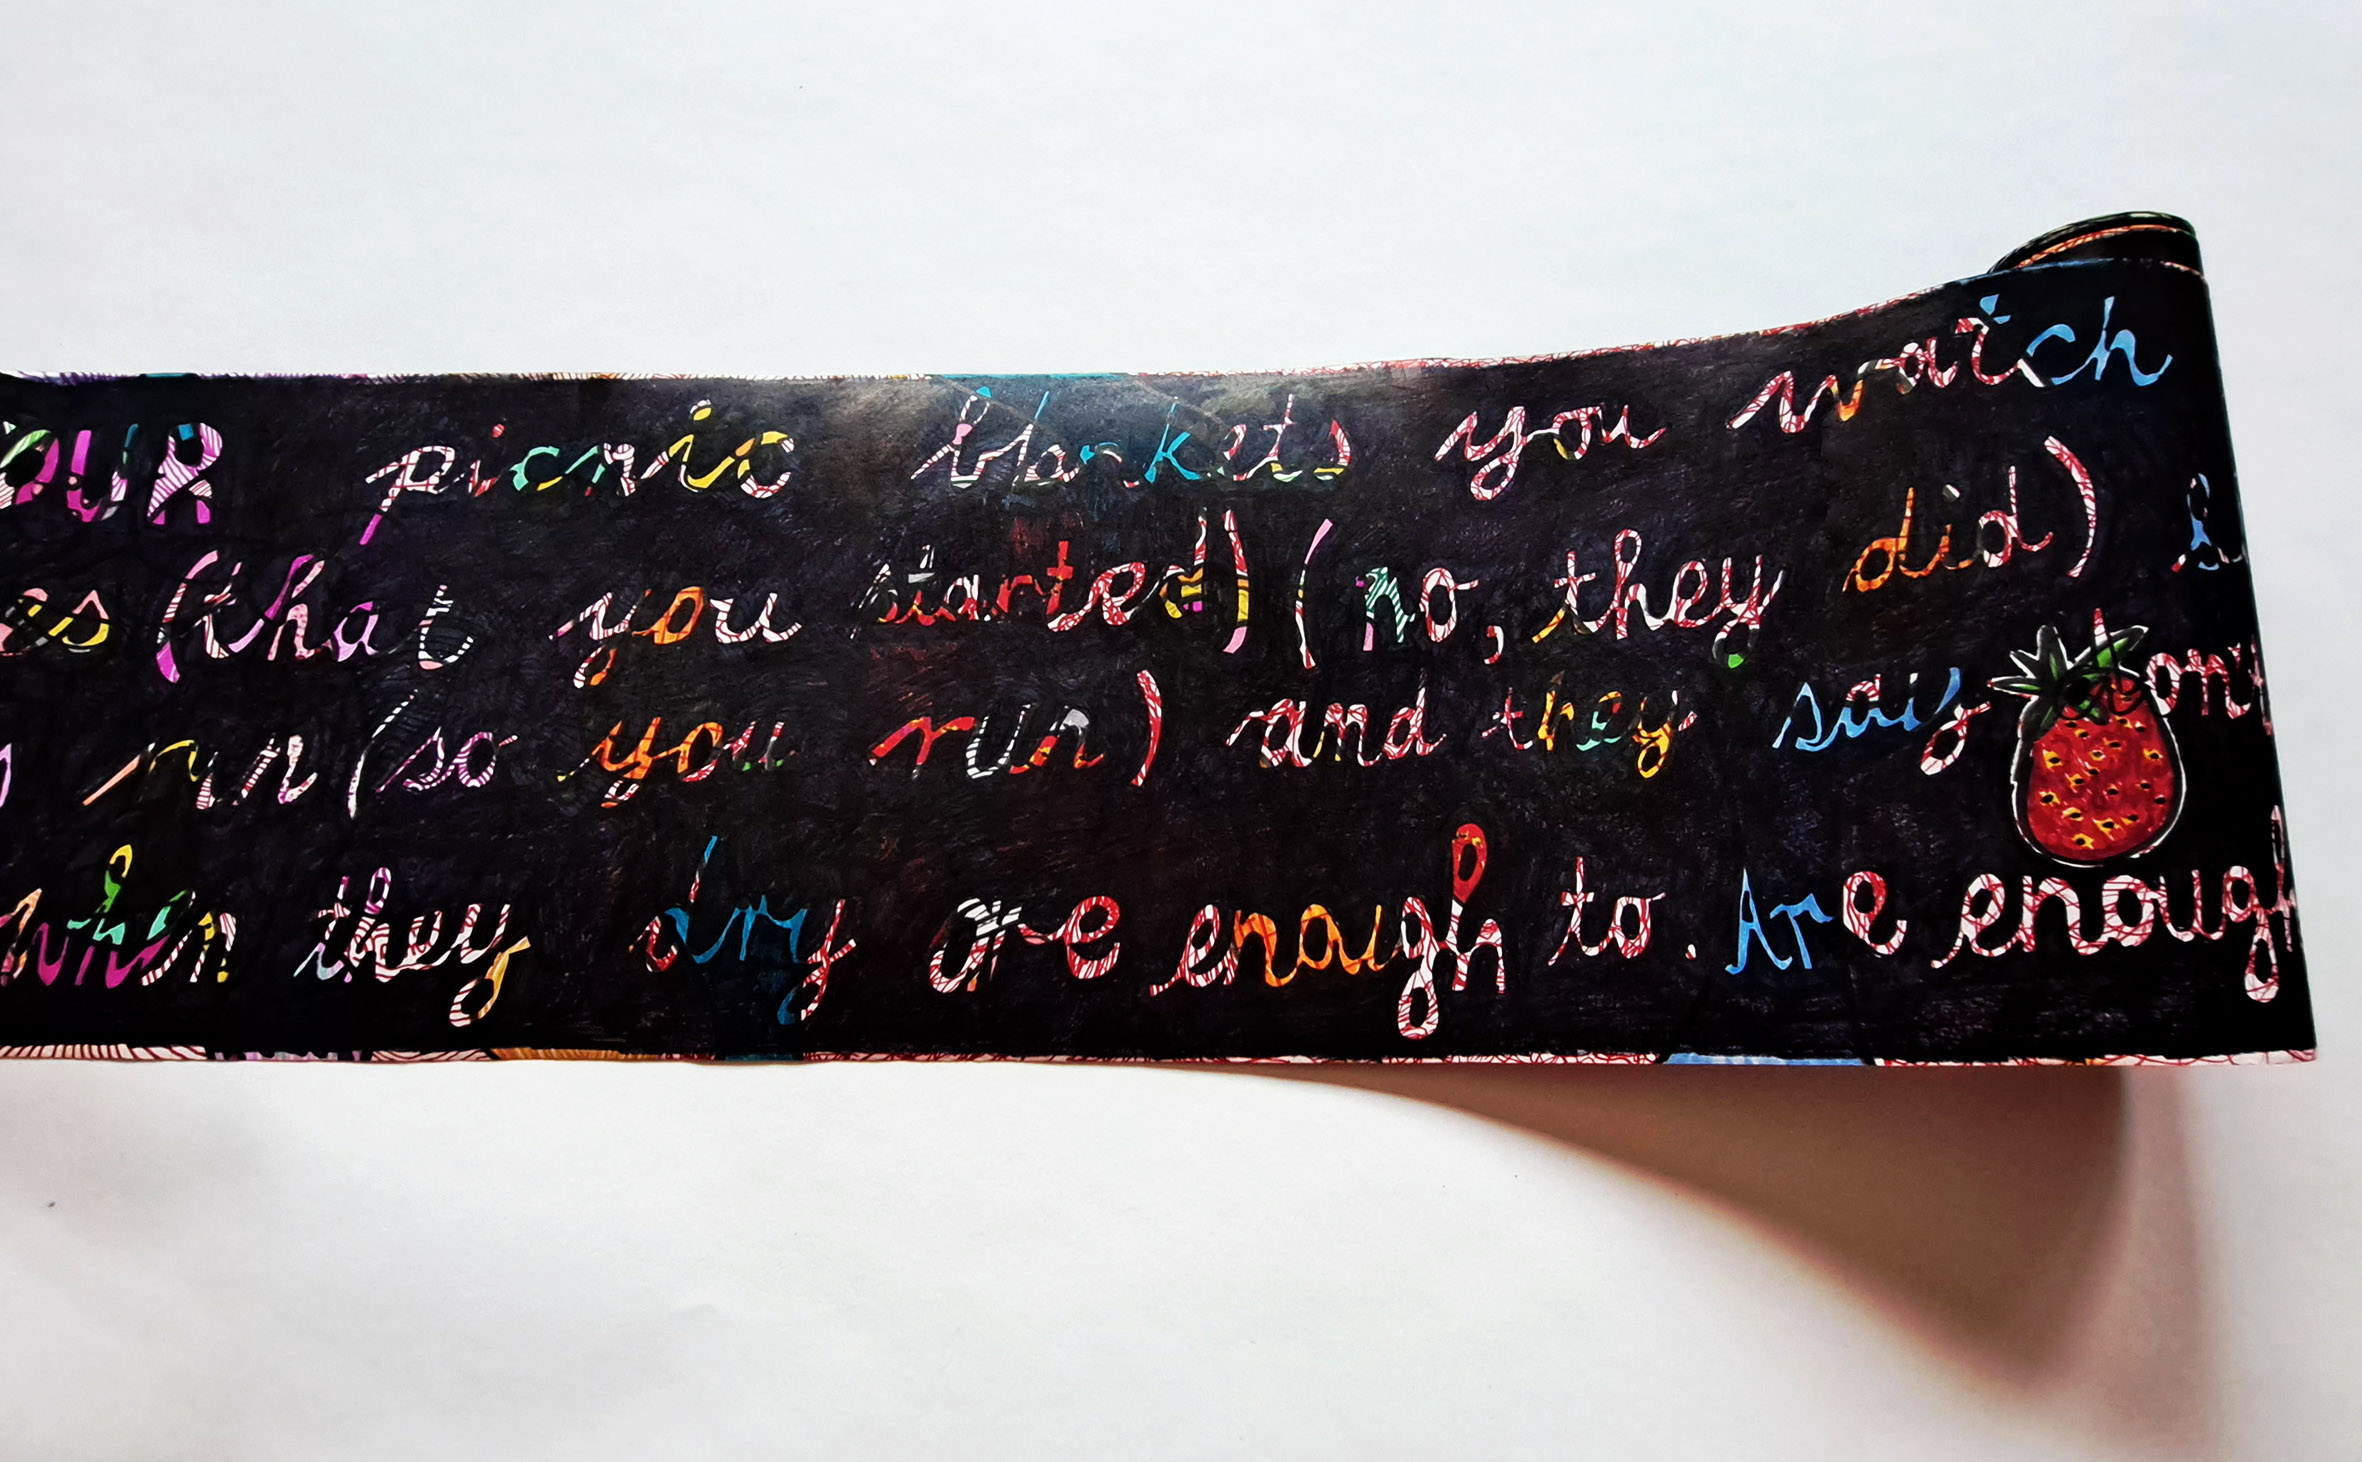 OUR picnic blankets you watch
es (that you started) (no, they did)
run (so you run) and they say
when they dry are enough to. Are enough